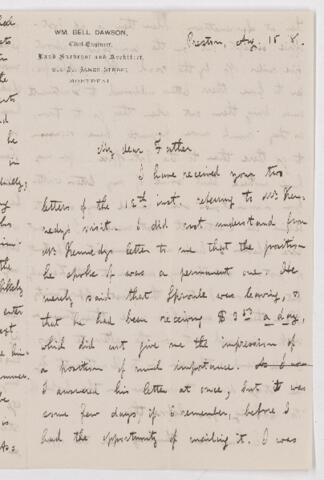 WM. BELL DAWSON,
Civil Engineer,
Land Surveyor and Architect,
ST. JAMES STREET
MONTREAL
Preston, Aug. 18
My dear Father
I have received your two
letters of the 12th inst. referring to Mr Ken-
nedys visit. I did not understand from
Mr Kennedys letter to me that the position
he spoke of was a permanent one. He
merely said that Sproule was leaving, &
that he had been receiving $3.50 a day,
which did not give me the impression of
a position of much importance. As I was
I answered his letter at once, but it was
some few days if I remember, before I
had the opportunity of mailing it. I was